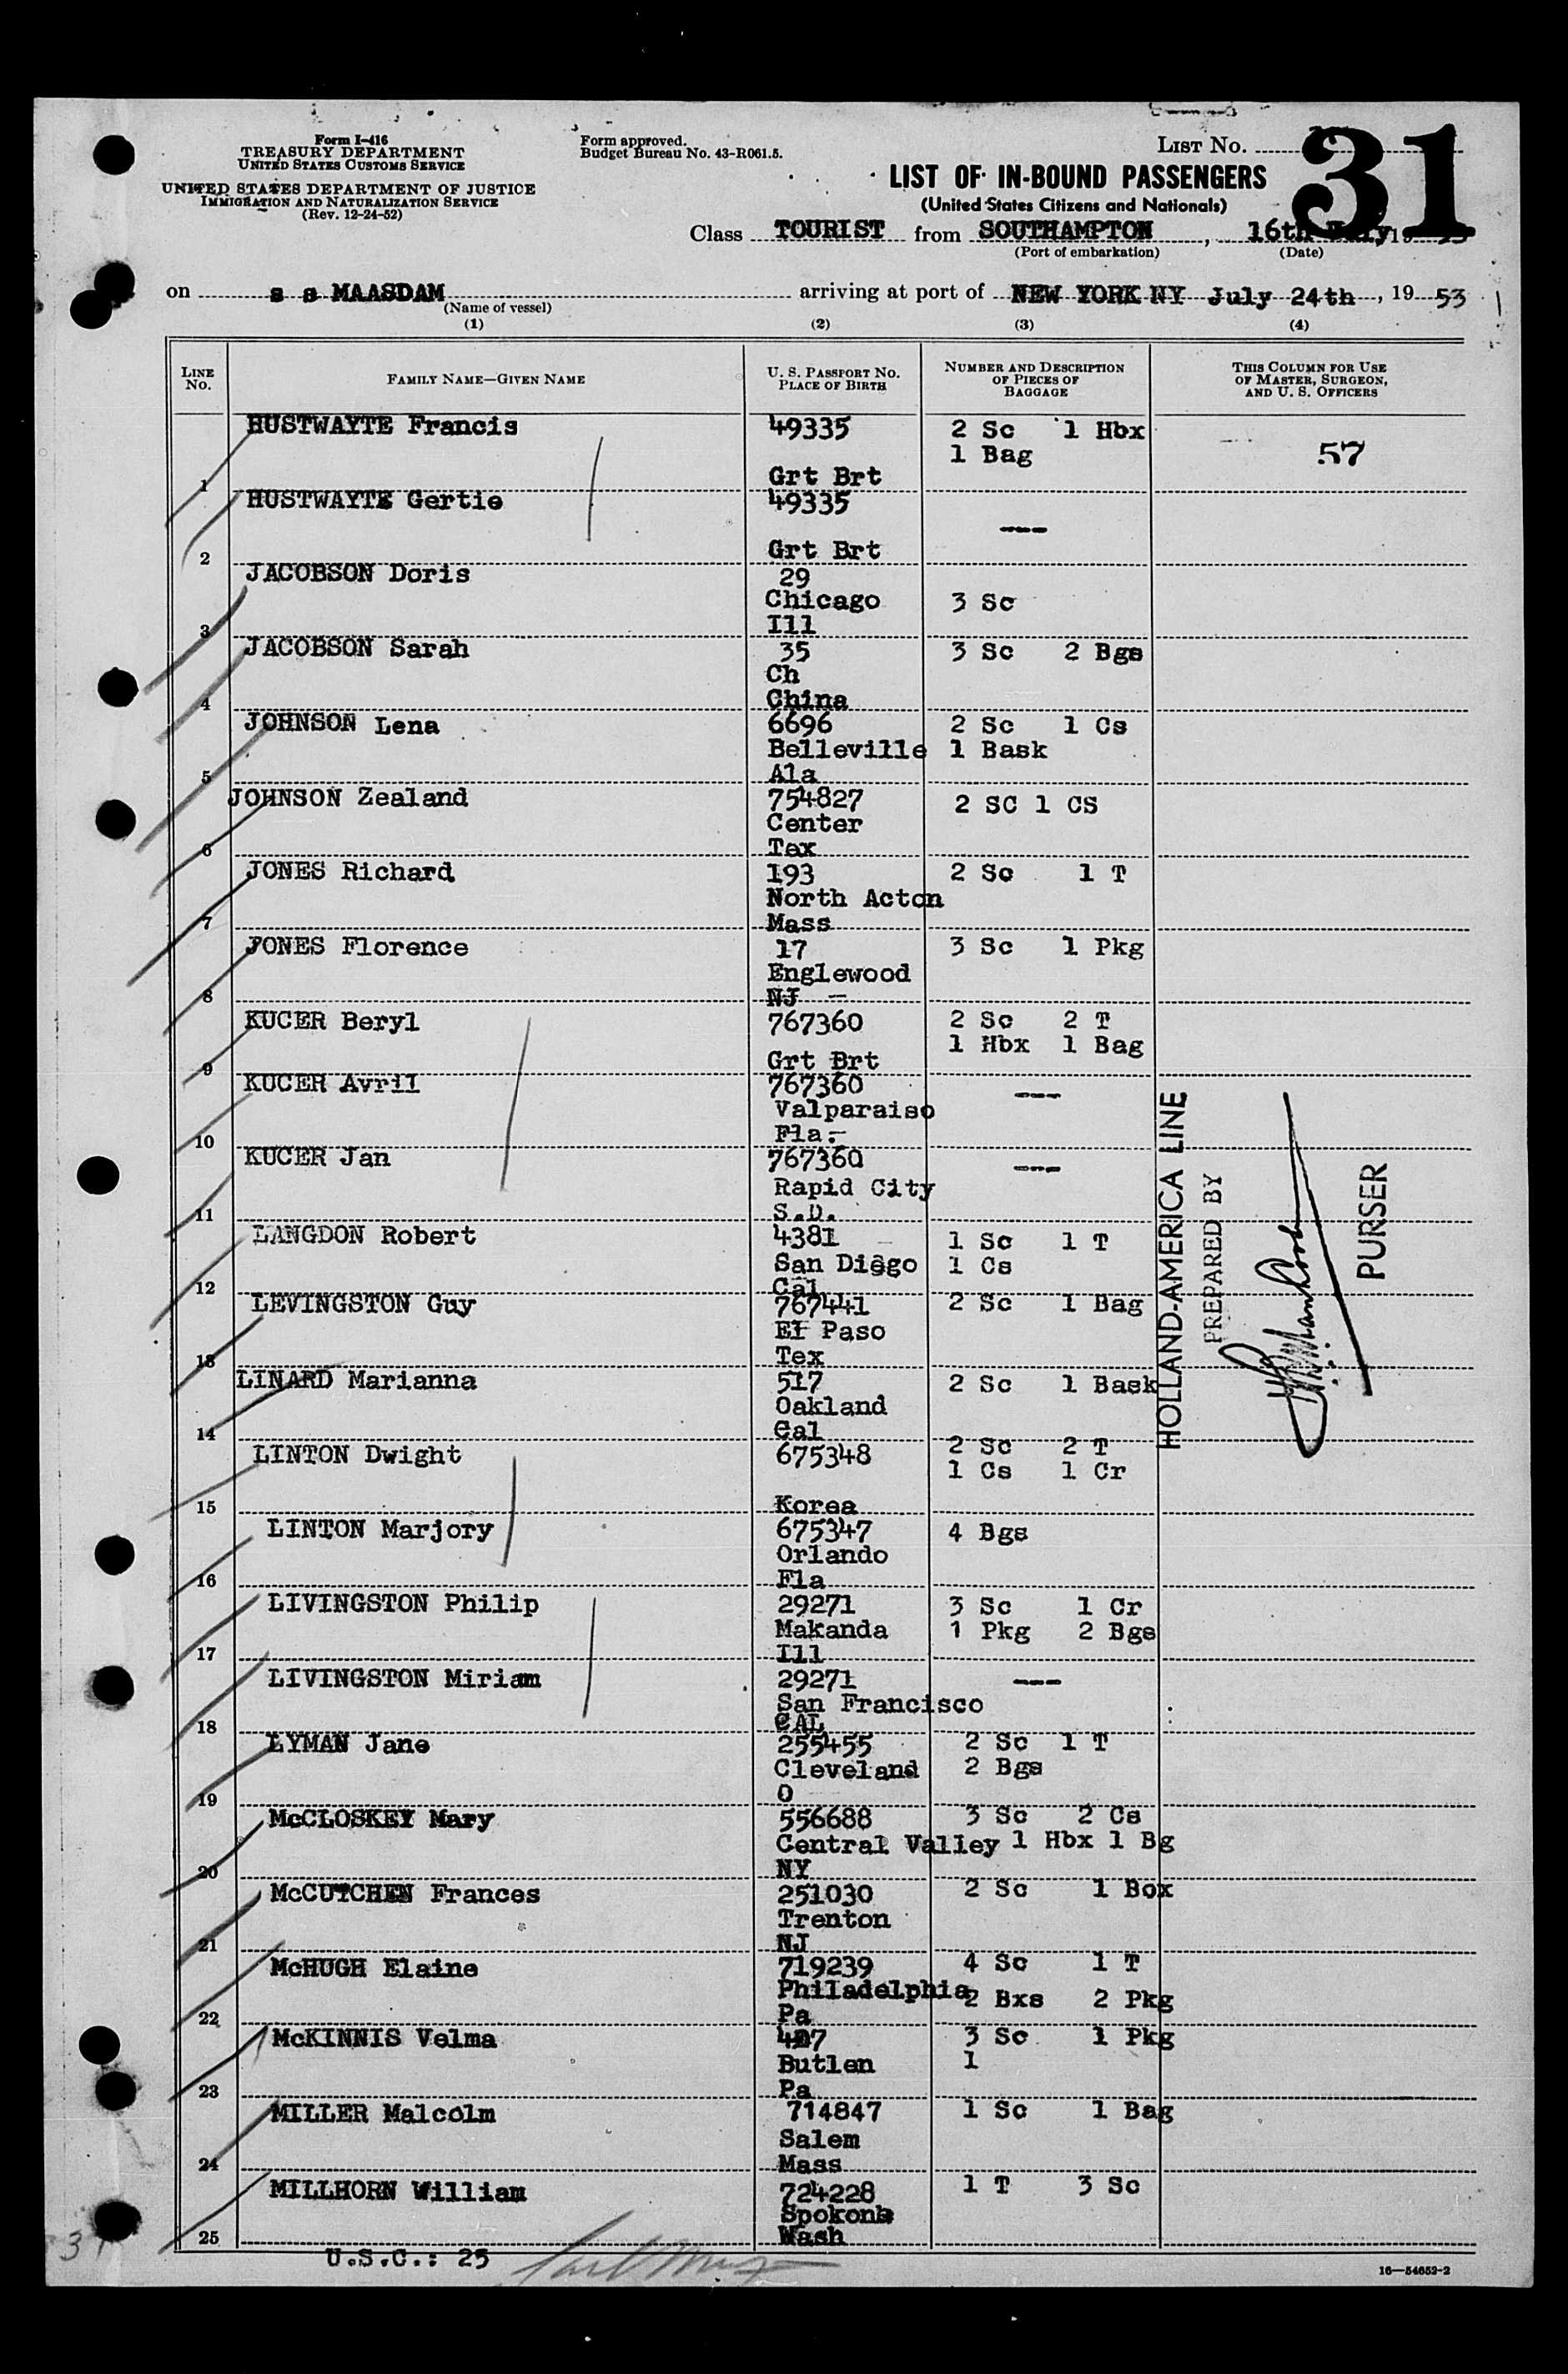 Form I-416
TREASURY DEPARTMENT
UNITED STATES CUSTOMS SERVICE
UNITED STATES DEPARTMENT OF JUSTICE
IMMIGRATION AND NATURALIZATION SERVICE
(Rev. 12-24-52)
Form approved.
Budget Bureau No. 43-R061.5.
LIST NO. 31
LIST OF IN-BOUND PASSENGERS
(United States Citizens and Nationals)
Class TOURIST from SOUTHAMPTON, 16th July, 19 53
(Port of embarkation) (Date)
on s s MAASDAM arriving at port of NEW YORK NY July 24th, 19 53
(Name of vessel)
(1) (2) (3) (4)
LINE NO. FAMILY NAME—GIVEN NAME U. S. PASSPORT NO. PLACE OF BIRTH NUMBER AND DESCRIPTION OF PIECES OF BAGGAGE THIS COLUMN FOR USE OF MASTER, SURGEON, AND U. S. OFFICERS
HUSTWAYTE Francis 49335 2 Sc 1 Hbx
1 Bag 57
1 Grt Brt
HUSTWAYTE Gertie 49335
---
2 Grt Brt
JACOBSON Doris 29
Chicago 3 Sc
3 Ill
JACOBSON Sarah 35 3 Sc 2 Bgs
Ch
4 China
JOHNSON Lena 6696 2 Sc 1 Cs
Belleville 1 Bask
5 Ala
JOHNSON Zealand 754827 2 SC 1 CS
Center
6 Tex
JONES Richard 193 2 Sc 1 T
North Acton
7 Mass
JONES Florence 17 3 Sc 1 Pkg
Englewood
8 NJ –
KUCER Beryl 767360 2 Sc 2 T
1 Hbx 1 Bag
9 Grt Brt
KUCER Avril 767360 ---
Valparaiso
10 Fla.-
KUCER Jan 767360 ---
Rapid City
11 S.D.
LANGDON Robert 4381 1 Sc 1 T
San Diego 1 Cs
12 Cal
LEVINGSTON Guy 767441 2 Sc 1 Bag
El Paso
13 Tex
LINARD Marianna 517 2 Sc 1 Bask
Oakland
14 Cal
LINTON Dwight 675348 2 Sc 2 T
1 Cs 1 Cr
15 Korea
LINTON Marjory 675347 4 Bgs
Orlando
16 Fla
LIVINGSTON Philip 29271 3 Sc 1 Cr
Makanda 1 Pkg 2 Bgs
17 Ill
LIVINGSTON Miriam 29271 ---
San Francisco
18 CAL
LYMAN Jane 255455 2 Sc 1 T
Cleveland 2 Bgs
19 O
McCLOSKEY Mary 556688 3 Sc 2 Cs
Central Valley 1 Hbx 1 Bg
20 NY
McCUTCHEN Frances 251030 2 Sc 1 Box
Trenton
21 NJ
McHUGH Elaine 719239 4 Sc 1 T
Philadelphia 2 Bxs 2 Pkg
22 Pa
McKINNIS Velma 3 Sc 1 Pkg
Butlen 1
23 Pa
MILLER Malcolm 714847 1 Sc 1 Bag
Salem
24 Mass
MILLHORN William 724228 1 T 3 Sc
Spokone
25 Wash
HOLLAND-AMERICA LINE
PREPARED BY
PURSER
U.S.C.: 25
16—54652-2